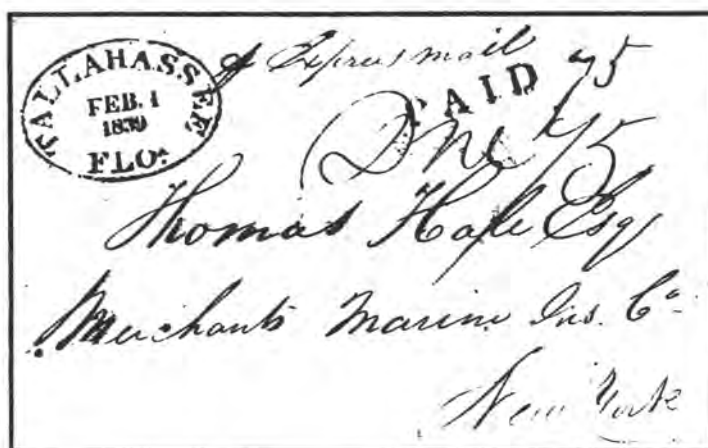 TALLAHASSEE
FEB. 1
1839
FLOª
Express mail
PAID 75
75
Thomas Hale Esq
Merchants Marine Ins. Cº
New York